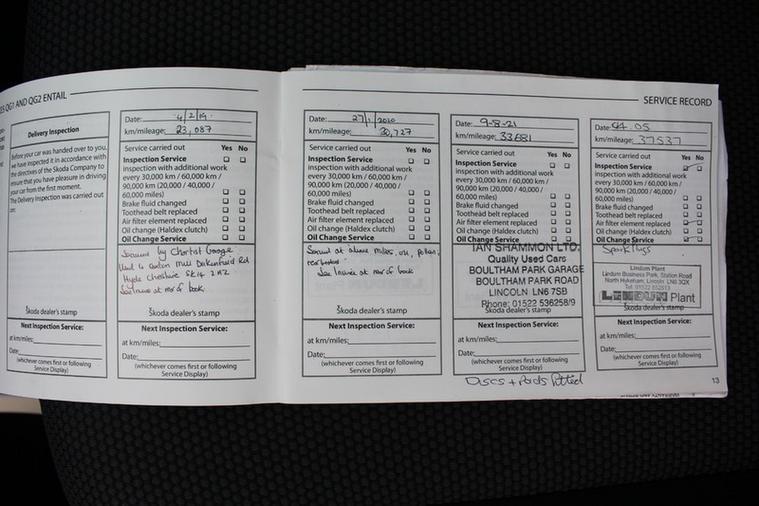 QG1 AND QG2 ENTAIL
SERVICE RECORD
Delivery Inspection
Before your car was handed over to you,
we have inspected it in accordance with
the directives of the Skoda Company to
ensure that you have pleasure in driving
your car from the first moment.
The Delivery Inspection was carried out
on:
Škoda dealer's stamp
Next Inspection Service:
at km/miles:
Date:
(whichever comes first or following
Service Display)
Date: 4/2/19
km/mileage: 23,087
Service carried out Yes No
Inspection Service
inspection with additional work
every 30,000 km / 60,000 km /
90,000 km (20,000 / 40,000 /
60,000 miles)
Brake fluid changed
Toothead belt replaced
Air filter element replaced
Oil change (Haldex clutch)
Oil Change Service
Serviced by Garage
Unit Mill Dukinfield Rd
Hyde Cheshire SK14
See invoice at rear of book
Škoda dealer's stamp
Next Inspection Service:
at km/miles:
Date:
(whichever comes first or following
Service Display)
Date: 27/1/2020
km/mileage: 30,727
Service carried out Yes No
Inspection Service
inspection with additional work
every 30,000 km / 60,000 km /
90,000 km (20,000 / 40,000 /
60,000 miles)
Brake fluid changed
Toothead belt replaced
Air filter element replaced
Oil change (Haldex clutch)
Oil Change Service
Serviced at above miles, oil, pollen,
See Invoice at rear of book
Škoda dealer's stamp
Next Inspection Service:
at km/miles:
Date:
(whichever comes first or following
Service Display)
Date: 9-8-21
km/mileage: 33681
Service carried out Yes No
Inspection Service
inspection with additional work
every 30,000 km / 60,000 km /
90,000 km (20,000 / 40,000 /
60,000 miles)
Brake fluid changed
Toothead belt replaced
Air filter element replaced
Oil change (Haldex clutch)
Oil Change Service
IAN SHAMMON LTD.
Quality Used Cars
BOULTHAM PARK GARAGE
BOULTHAM PARK ROAD
LINCOLN LN6 7SB
Phone: 01522 536258/9
Škoda dealer's stamp
Next Inspection Service:
at km/miles:
Date:
(whichever comes first or following
Service Display)
Discs + Pads fitted
Date: 05
km/mileage: 37537
Service carried out Yes No
Inspection Service
inspection with additional work
every 30,000 km / 60,000 km /
90,000 km (20,000 / 40,000 /
60,000 miles)
Brake fluid changed
Toothead belt replaced
Air filter element replaced
Oil change (Haldex clutch)
Oil Change Service
Spark Plugs
Lindum Plant
Lindum Business Park, Station Road
North Hykeham, Lincoln LN6 3QX
Tel: 01522
LINDUM Plant
Škoda dealer's stamp
Next Inspection Service:
at km/miles:
Date:
(whichever comes first or following
Service Display)
13